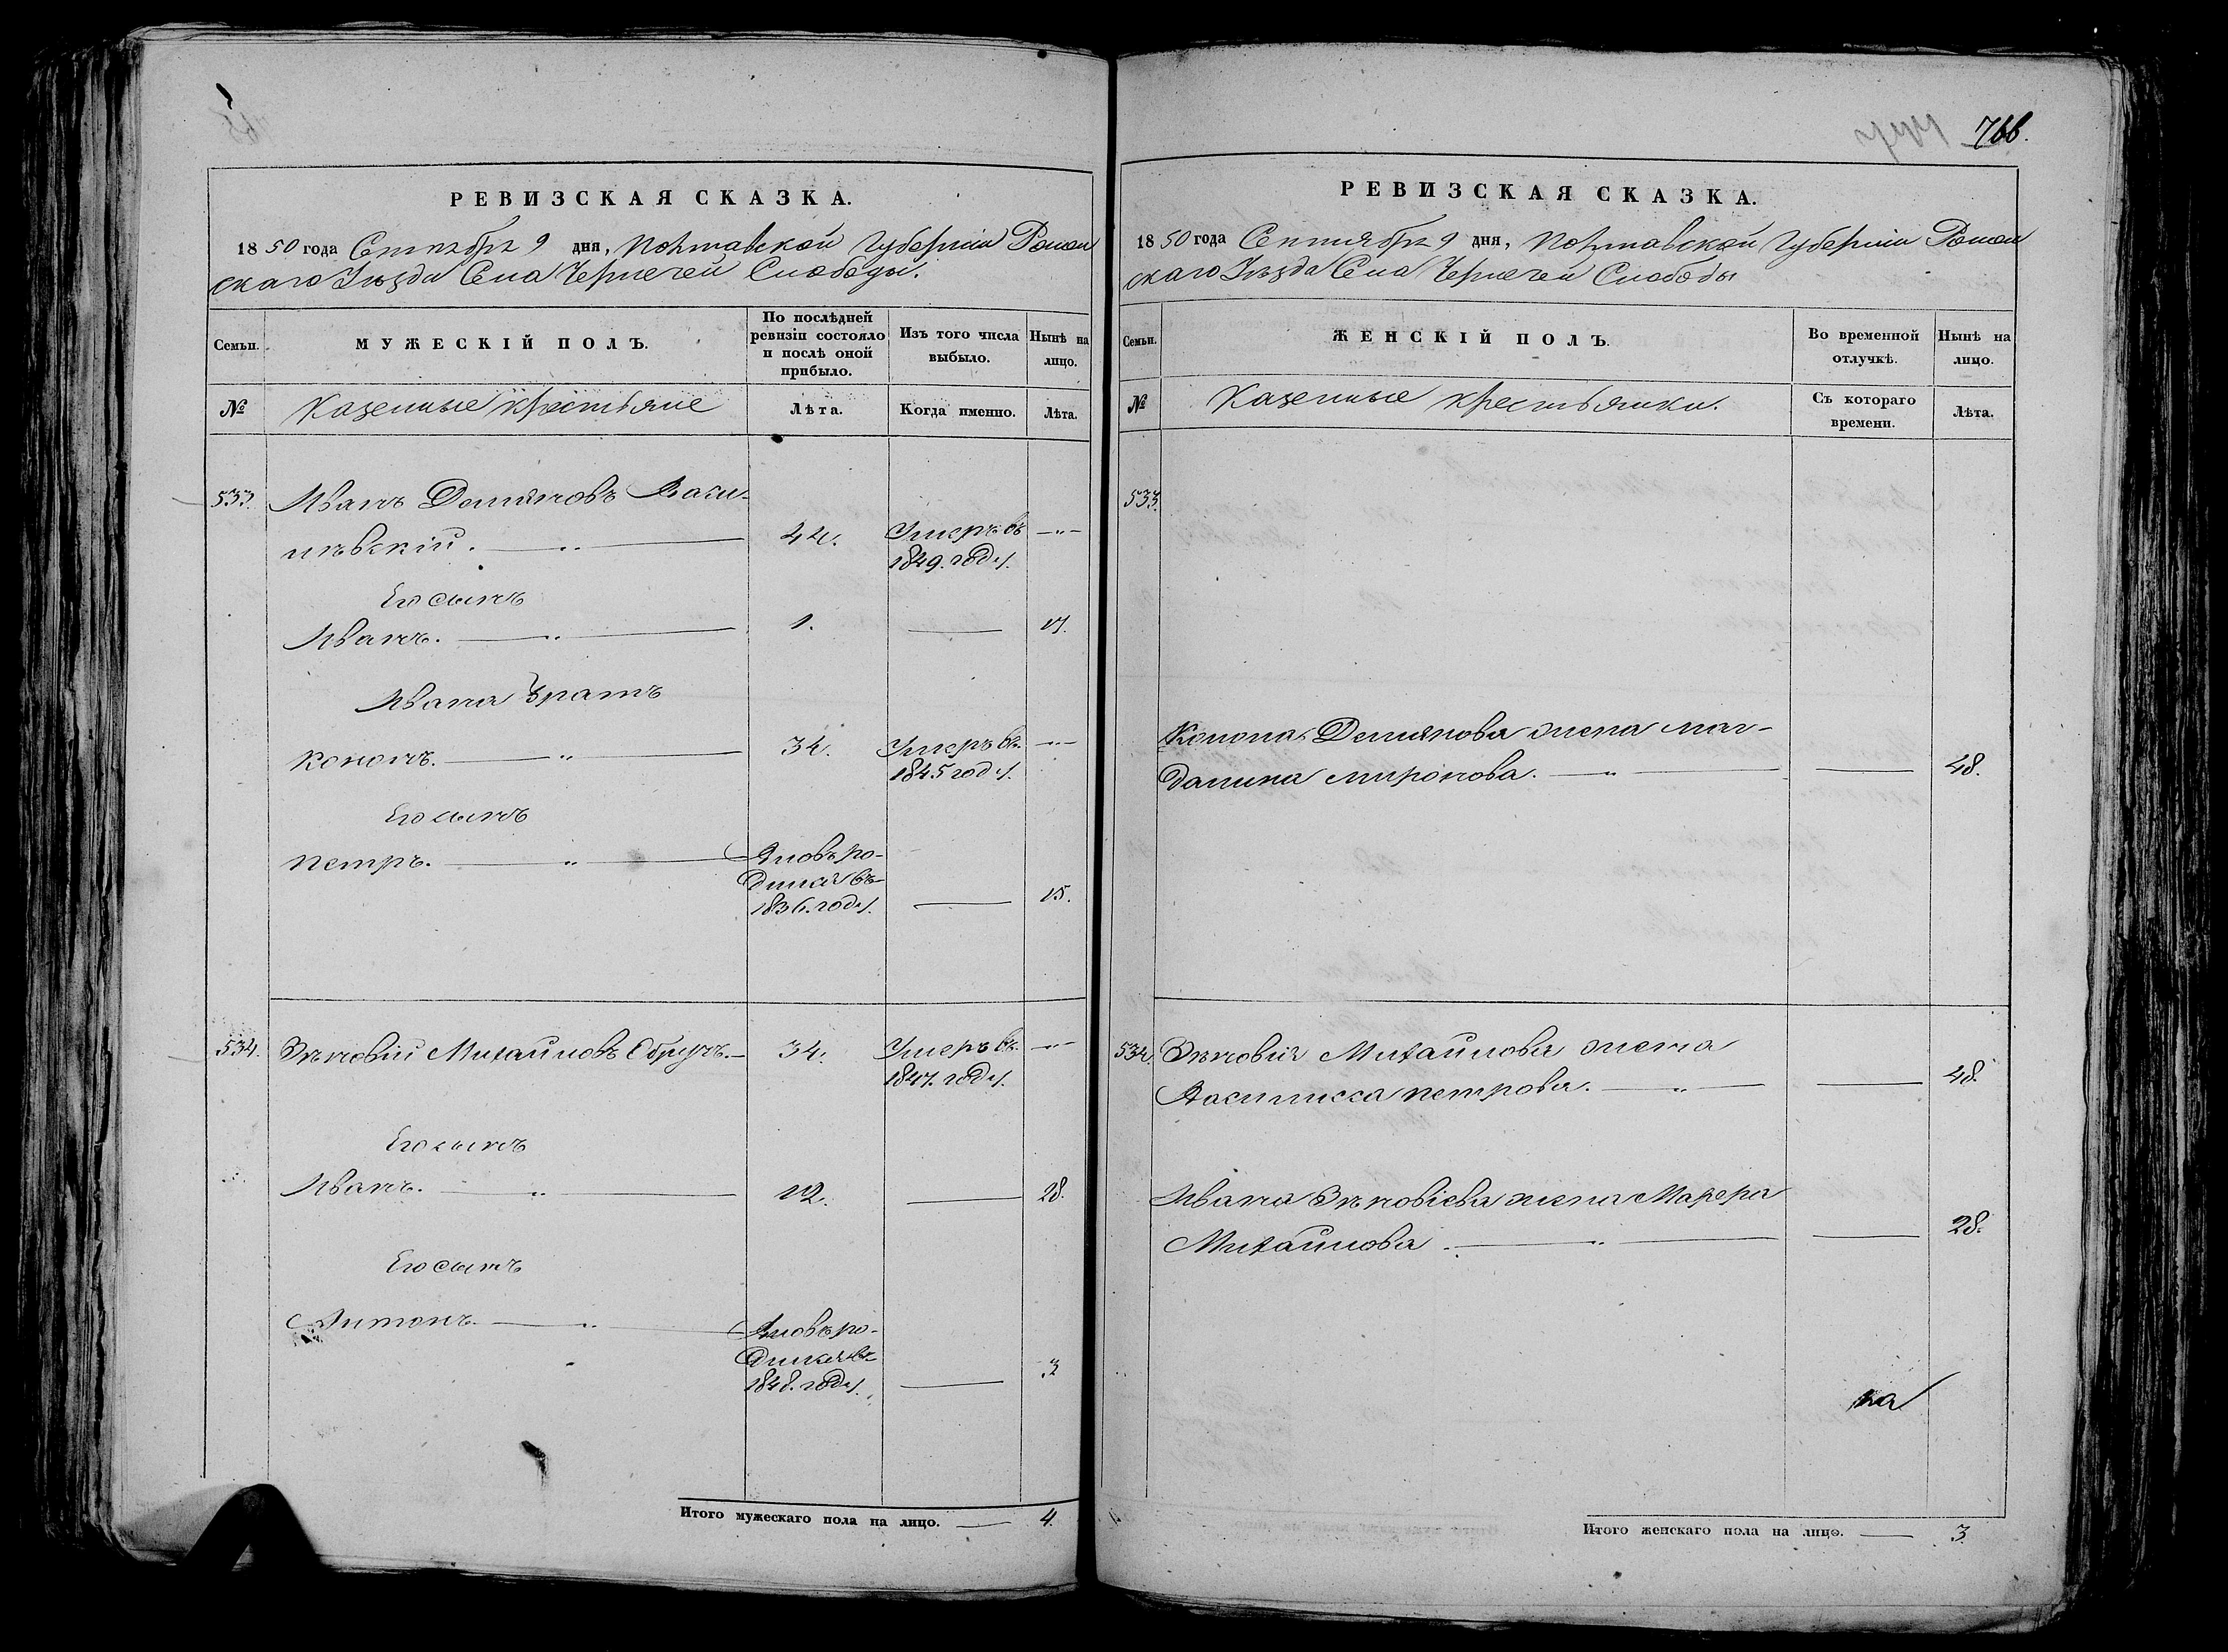 РЕВИЗСКАЯ СКАЗКА.
1850 года Сентября 9 дня, Полтавской Губернiи Ромен
скаго Уѣзда Села Чернечей Слободы.
Семьи.
МУЖЕСКIЙ ПОЛЪ.
По послѣдней
ревизiи состояло
и послѣ оной
прибыло.
Изъ того числа
выбыло.
Нынѣ на
лицо.
№
Казенные крестьяне
Лѣта.
Когда именно.
Лѣта.
533. Иванъ Демяновъ Васи-
лѣвскiй. 44. Умеръ въ
1849. году.
Его сынъ
Иванъ. 1. 17.
Ивана братъ
Кононъ. 34. Умеръ въ
1845 году.
Его сынъ
Петръ. Вновь ро-
дился въ
1836. году. 15.
534. Зѣновiй Михайловъ Обручъ. 34. Умеръ въ
1847. году.
Его сынъ
Иванъ. 12. 28.
Его сынъ
Антонъ. Вновь ро-
дился въ
1848. году. 3
Итого мужескаго пола на лицо. 4.
766.
РЕВИЗСКАЯ СКАЗКА.
1850 года Сентября 9 дня, Полтавской Губернiи Ромен
скаго Уѣзда Села Чернечей Слободы
Семьи.
ЖЕНСКIЙ ПОЛЪ.
Во временной
отлучкѣ.
Нынѣ на
лицо.
№
Казенные крестьянки.
Съ котораго
времени.
Лѣта.
533.
Конона Демянова жена Маг-
далина Миронова. 48.
534. Зѣновiя Михайлова жена
Василисса Петрова. 48.
Ивана Зѣновiева жена
Михайлова 28.
Итого женскаго пола на лицо. 3.